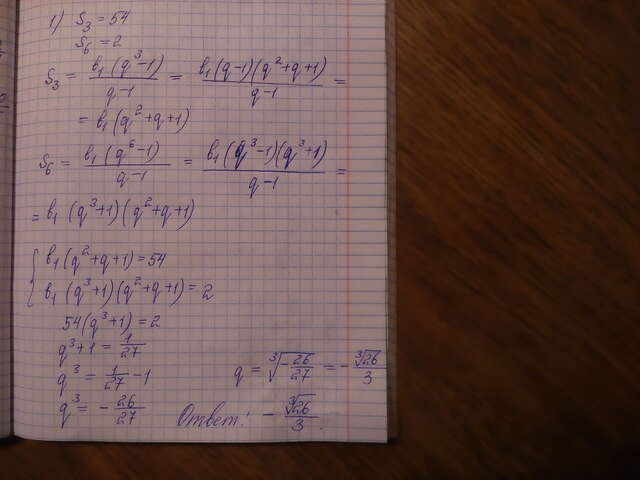 1) S₃ = 54
S₆ = 2
S₃ = b₁(q³-1)/(q-1) = b₁(q-1)(q²+q+1)/(q-1) =
= b₁(q²+q+1)
S₆ = b₁(q⁶-1)/(q-1) = b₁(q³-1)(q³+1)/(q-1) =
= b₁(q³+1)(q²+q+1)
{ b₁(q²+q+1) = 54
b₁(q³+1)(q²+q+1) = 2
54(q³+1) = 2
q³+1 = 1/27
q³ = 1/27 - 1
q³ = -26/27
q = ∛(-26/27) = -∛26/3
Ответ: -∛26/3.